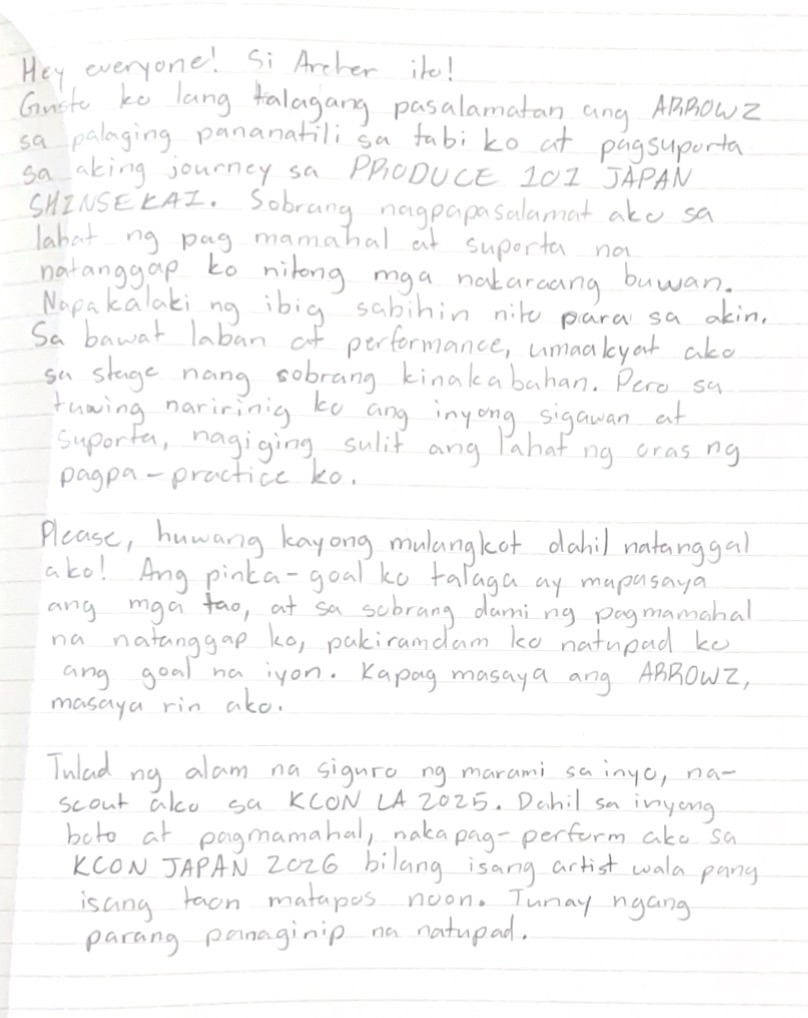 Hey everyone! Si Archer ito!
Gusto ko lang talagang pasalamatan ang ARROWZ
sa palaging pananatili sa tabi ko at pagsuporta
sa aking journey sa PRODUCE 101 JAPAN
SHINSEKAI. Sobrang nagpapasalamat ako sa
lahat ng pag mamahal at suporta na
natanggap ko nitong mga nakaraang buwan.
Napakalaki ng ibig sabihin nito para sa akin.
Sa bawat laban at performance, umaakyat ako
sa stage nang sobrang kinakabahan. Pero sa
tuwing naririnig ko ang inyong sigawan at
suporta, nagiging sulit ang lahat ng oras ng
pagpa-practice ko.
Please, huwang kayong malungkot dahil natanggal
ako! Ang pinka-goal ko talaga ay mapasaya
ang mga tao, at sa sobrang dami ng pagmamahal
na natanggap ko, pakiramdam ko natupad ko
ang goal na iyon. Kapag masaya ang ARROWZ,
masaya rin ako.
Tulad ng alam na siguro ng marami sa inyo, na-
scout ako sa KCON LA 2025. Dahil sa inyong
boto at pagmamahal, nakapag-perform ako sa
KCON JAPAN 2026 bilang isang artist wala pang
isang taon matapos noon. Tunay ngang
parang panaginip na natupad.